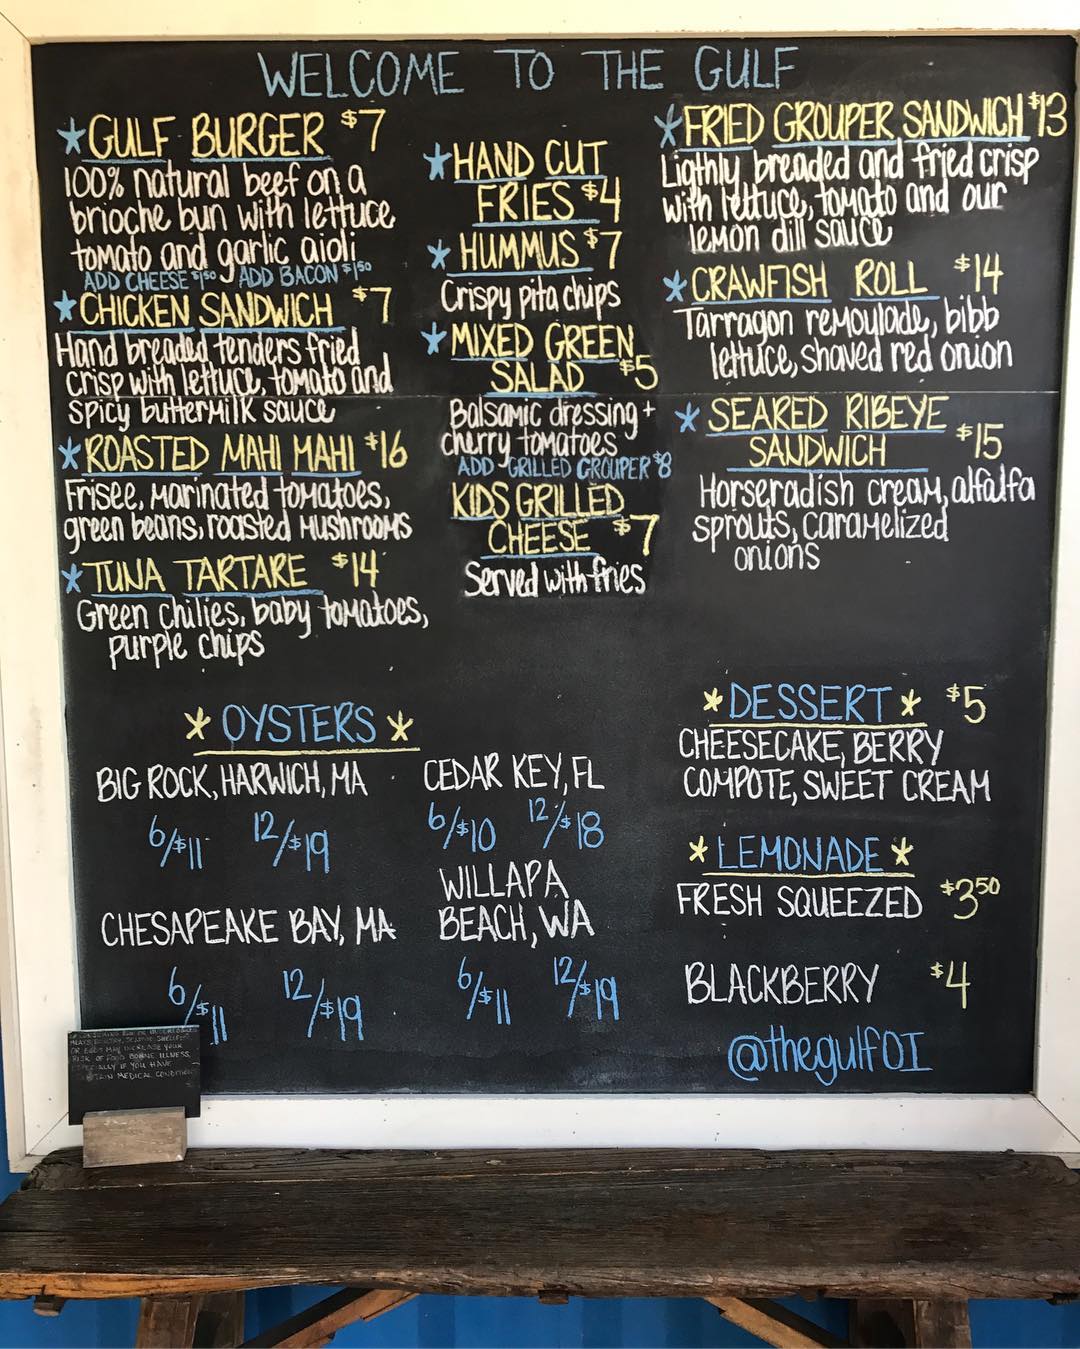 WELCOME TO THE GULF
GULF BURGER $7
100% natural beef on a
brioche bun with lettuce
tomato and garlic aioli
ADD CHEESE $1.50 ADD BACON $1.50
CHICKEN SANDWICH $7
Hand breaded tenders fried
crisp with lettuce, tomato and
spicy buttermilk sauce
ROASTED MAHI MAHI $16
Frisee, marinated tomatoes,
green beans, roasted mushrooms
TUNA TARTARE $14
Green chilies, baby tomatoes,
purple chips
HAND CUT
FRIES $4
HUMMUS $7
Crispy pita chips
MIXED GREEN
SALAD $5
Balsamic dressing +
cherry tomatoes
ADD GRILLED GROUPER $8
KIDS GRILLED
CHEESE $7
Served with fries
FRIED GROUPER SANDWICH $13
Ligthly breaded and fried crisp
with lettuce, tomato and our
lemon dill sauce
CRAWFISH ROLL $14
Tarragon remoulade, bibb
lettuce, shaved red onion
SEARED RIBEYE
SANDWICH $15
Horseradish cream, alfalfa
sprouts, caramelized
onions
OYSTERS
BIG ROCK, HARWICH, MA
6/$11 12/$19
CEDAR KEY, FL
6/$10 12/$18
CHESAPEAKE BAY, MA
6/$11 12/$19
WILLAPA
BEACH, WA
6/$11 12/$19
DESSERT $5
CHEESECAKE, BERRY
COMPOTE, SWEET CREAM
LEMONADE
FRESH SQUEEZED $3.50
BLACKBERRY $4
@thegulfOI
CONSUMING RAW OR UNDERCOOKED
MEATS, POULTRY, SEAFOOD, SHELLFISH
OR EGGS MAY INCREASE YOUR
RISK OF FOOD BORNE ILLNESS,
ESPECIALLY IF YOU HAVE
CERTAIN MEDICAL CONDITIONS